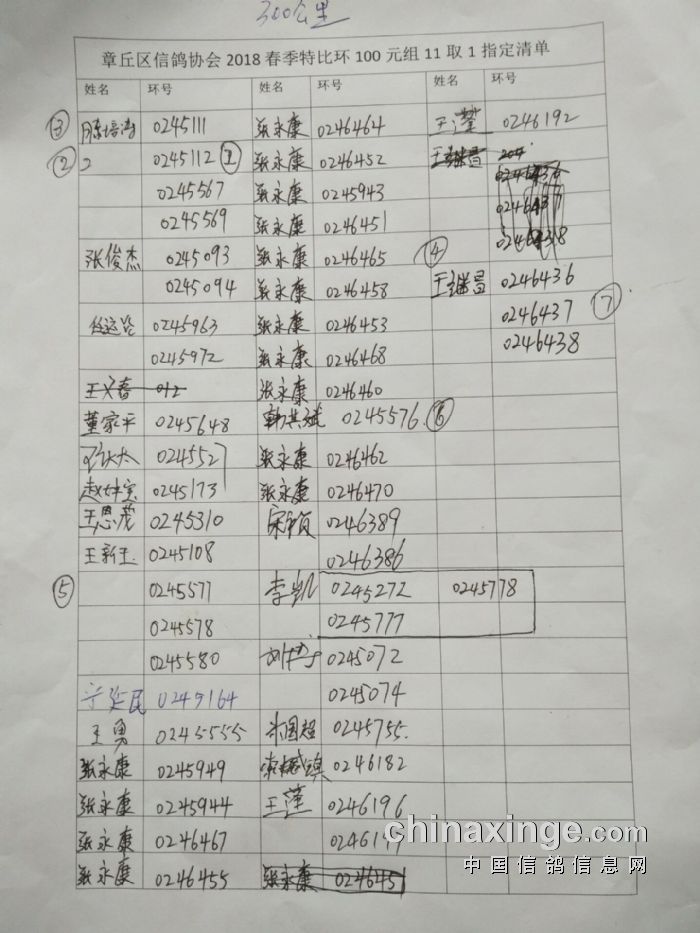 300公里
章丘区信鸽协会2018春季特比环100元组11取1指定清单
姓名 环号 姓名 环号 姓名 环号
③ 陈培涛 0245111 张永康 0246464 王滢 0246192
② 2 0245112 ① 张永康 0246452 王继昌 204
0245567 张永康 0245943 0246436
0245569 张永康 0246451 0246437
0246438
张俊杰 0245093 张永康 0246465 ④
0245094 张永康 0246458 王继昌 0246436
0245963 张永康 0246453 0246437 ⑦
0245972 张永康 0246468 0246438
王义春 012 张永康 0246460
董家平 0245648 韩其斌 0245576. ⑥
0245527 张永康 0246462
0245173 张永康 0246470
王恩茂 0245310 宋颖 0246389
王新玉 0245108 0246386
⑤ 0245577 李凯 0245272 0245778
0245578 0245777
0245580 0245072
于延民 0249164 0245074
王勇 0245555 国超 0245755.
张永康 0245949 0246182
张永康 0245944 王莲 0246196
张永康 0246467
张永康 0246455 张永康 0246451
chinaxinge.com
中国信鸽信息网